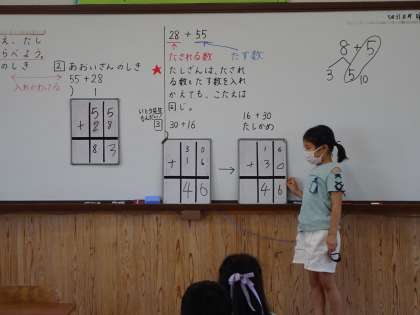 え、たし
らべよう。
のしき
入れかわってる
2 あおいさんのしき
55+28
5 5
+ 2 8
8 3
28 + 55
たされる数 たす数
★ たしざんは、たされ
る数とたす数を入れ
かえても、こたえは
同じ。
3 30+16
3 0
+ 1 6
4 6
→
16+30
たしかめ
1 6
+ 3 0
4 6
8+5
3 5 10